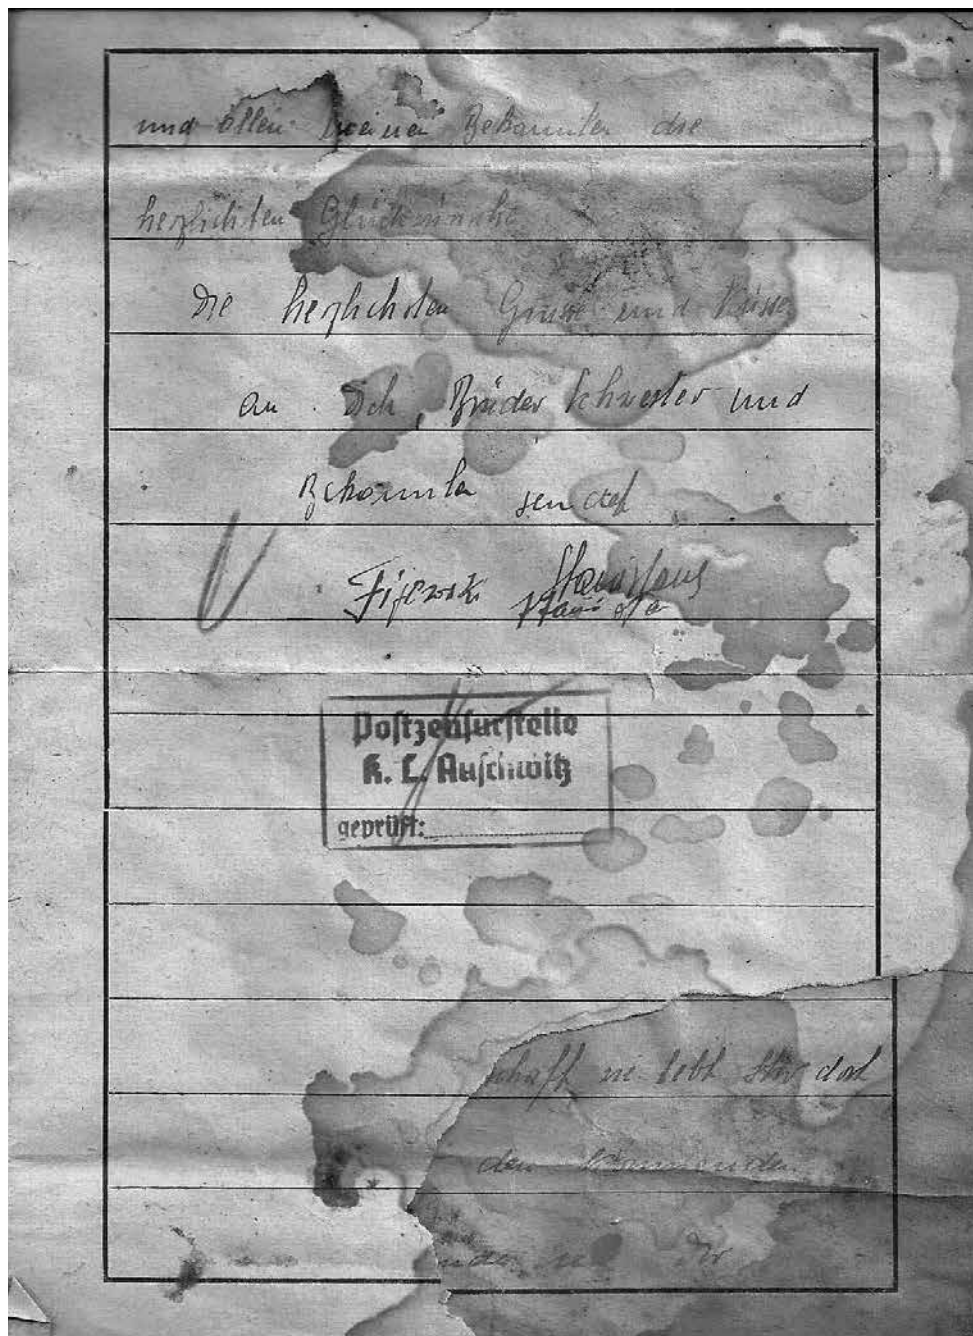 und allen meinen Bekannten die
herzlichten Glückwünche
Die herzlichsten Grüsse und Küsse
an Dich, Brüder Schwester und
Bekannten sendet
Fijewski Stanislaus
Postzensurstelle
K. L. Auschwitz
geprüft:
schaft lebt dort
den kommenden